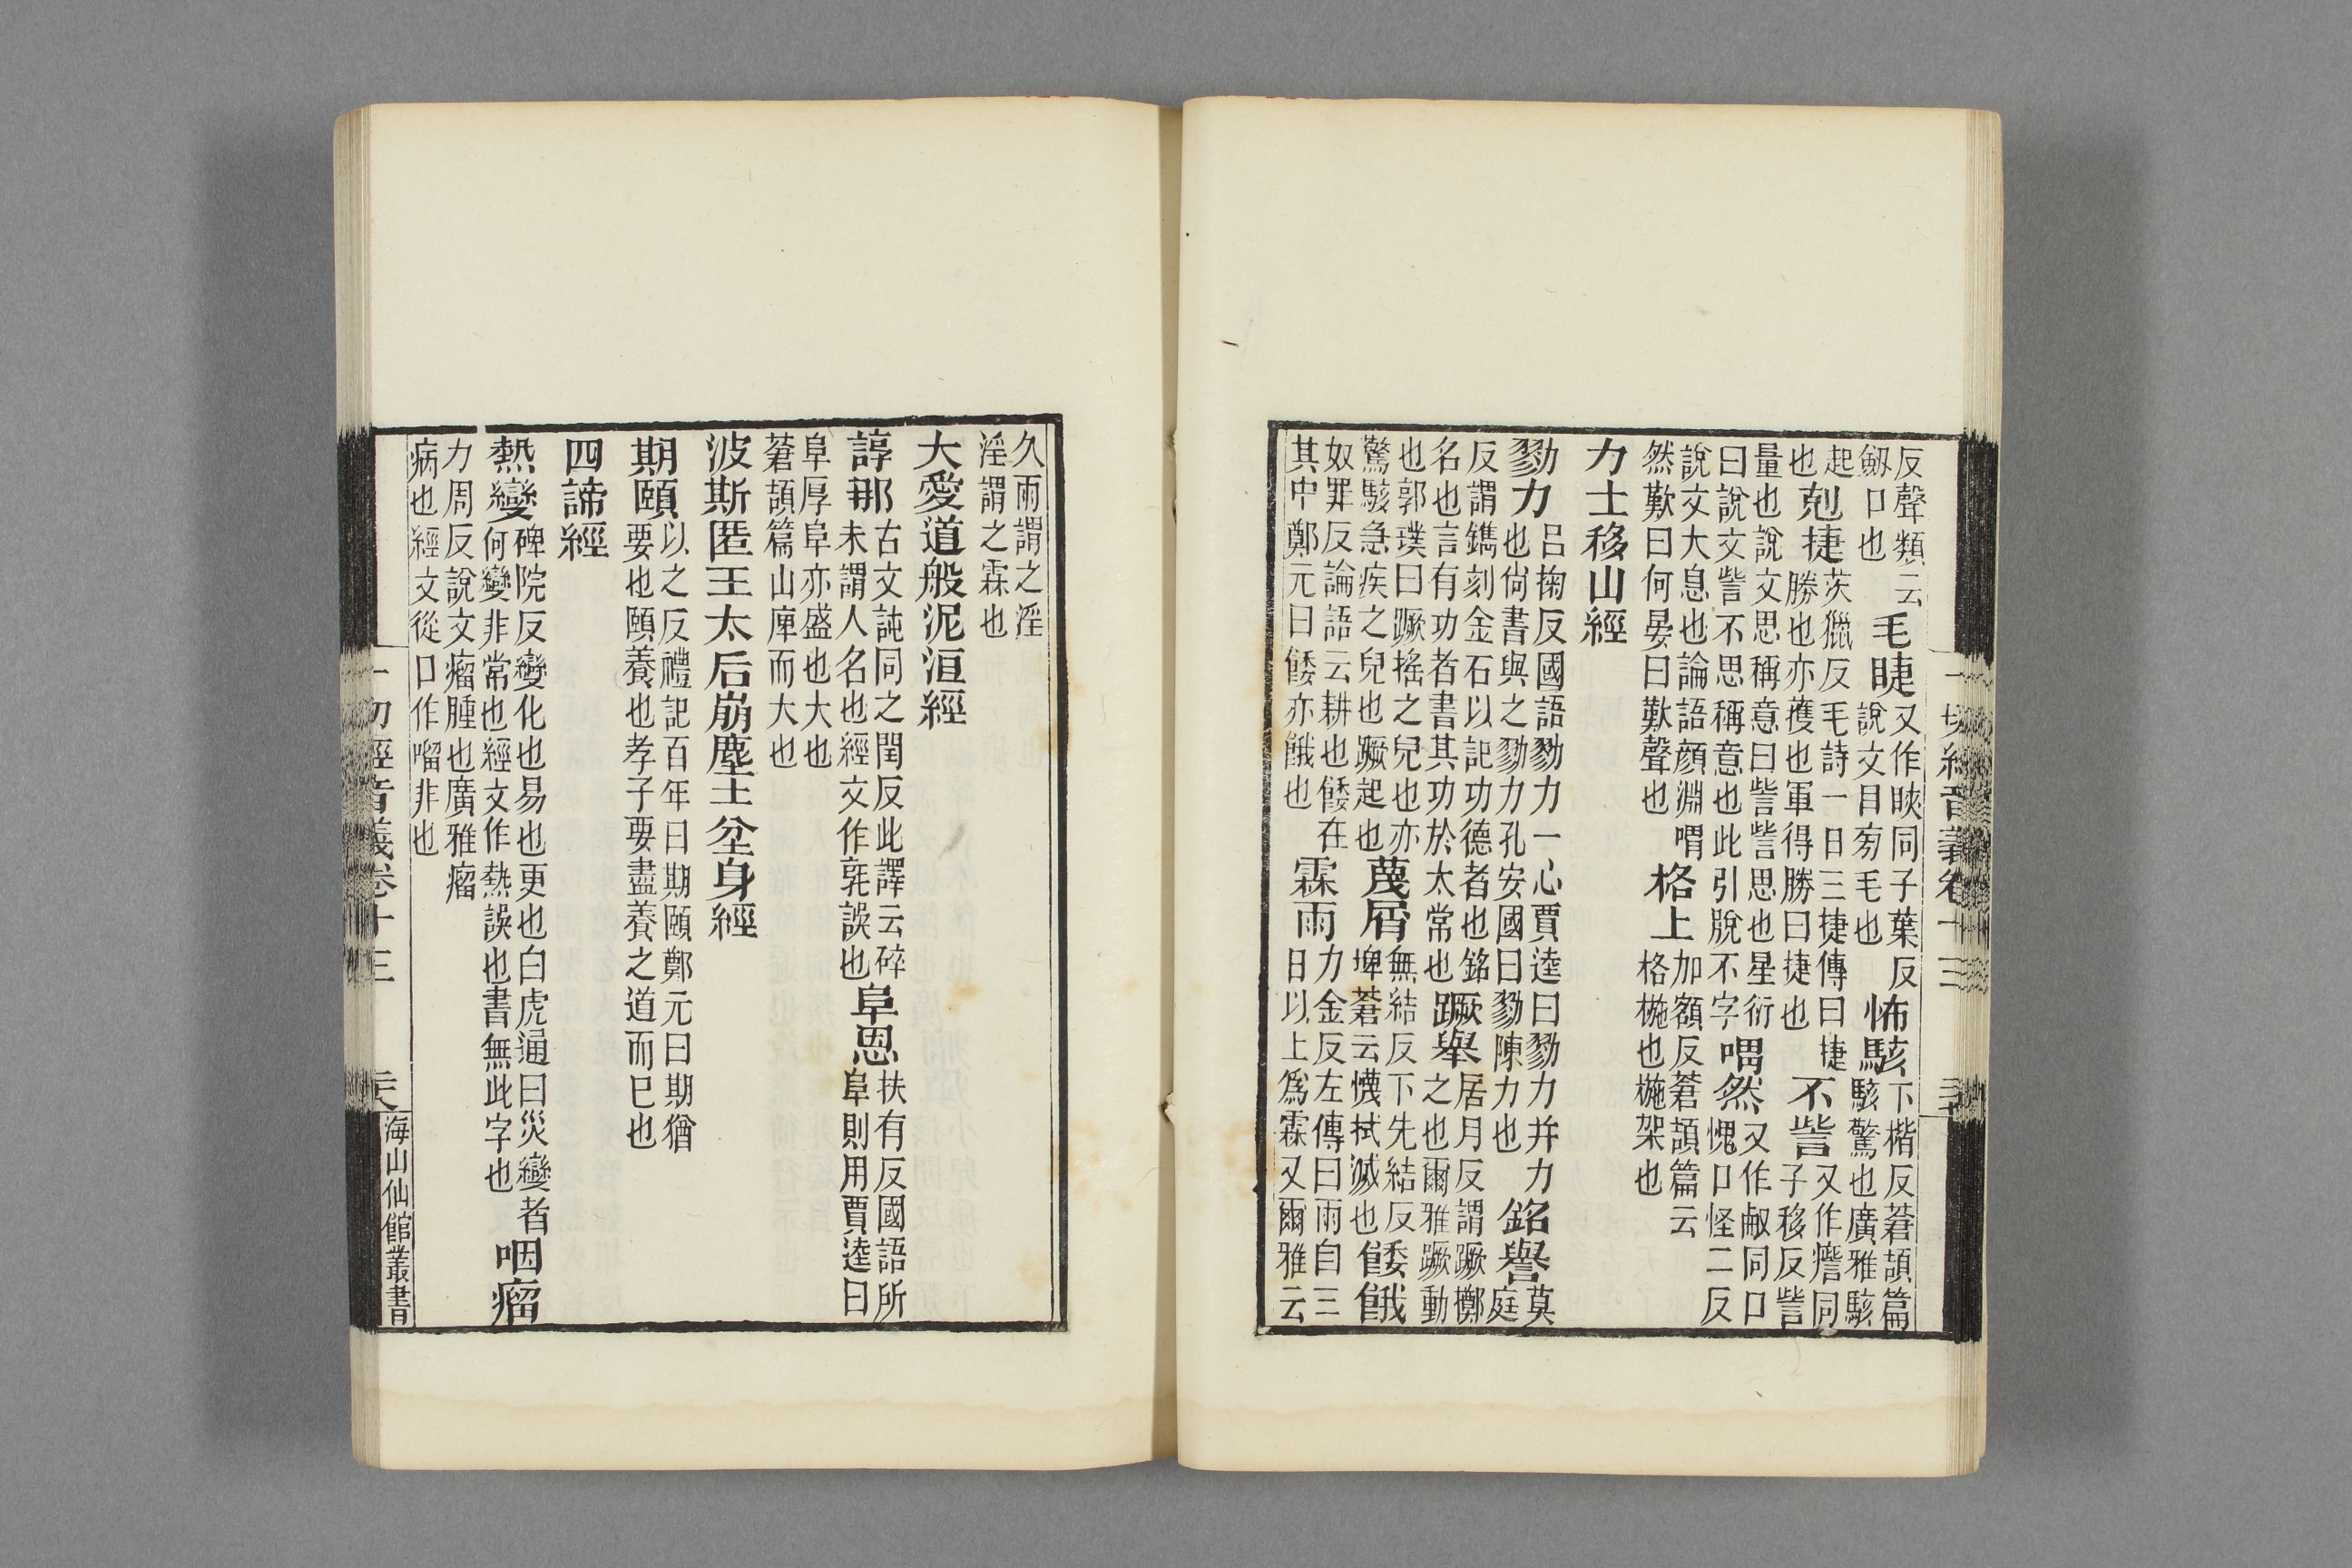 反聲類云
劒口也
毛睫
又作䀹同子葉反
說文目旁毛也
怖駭
下楷反蒼頡篇
駭驚也廣雅駭
起
也
剋捷
茨獵反毛詩一日三捷傳曰捷
勝也亦蒦也軍得勝曰捷也
不訾
又作𧫦同
子移反訾
量也說文思稱意曰訾訾思也星衍
曰說文訾不思稱意也此引脫不字
喟然
又作嘳同口
愧口怪二反
說文大息也論語顏淵喟
然歎曰何晏曰歎聲也
格上
加額反蒼頡篇云
格㭟也㭟架也
力士移山經
勠力
呂掬反國語勠力一心賈逵曰勠力并力
也尙書與之勠力孔安國曰勠陳力也
銘譽
莫
庭
反謂鐫刻金石以記功德者也銘
名也言有功者書其功於太常也
蹶舉
居月反謂蹶擲
之也爾雅蹶動
也郭璞曰蹶搖之皃也亦
驚駭急疾之皃也蹶起也
蔑屑
無結反下先結反
埤蒼云懱拭滅也
餧餓
奴罪反論語云耕也餧在
其中鄭元曰餧亦餓也
霖雨
力金反左傳曰雨自三
日以上爲霖又爾雅云
久雨謂之淫
淫謂之霖也
大愛道般泥洹經
諄那
古文訰同之閏反此譯云碎
未謂人名也經文作毣誤也
阜恩
扶有反國語所
阜則用賈逵曰
阜厚阜亦盛也大也
蒼頡篇山庳而大也
波斯匿王太后崩塵土坌身經
期頤
以之反禮記百年曰期頤鄭元曰期猶
要也頤養也孝子要盡養之道而已也
四諦經
㷍變
碑院反變化也易也更也白虎通曰災變者
何變非常也經文作㷍誤也書無此字也
咽瘤
力周反說文瘤腫也廣雅瘤
病也經文從口作嚠非也
一切經音義卷十三
海山仙館叢書